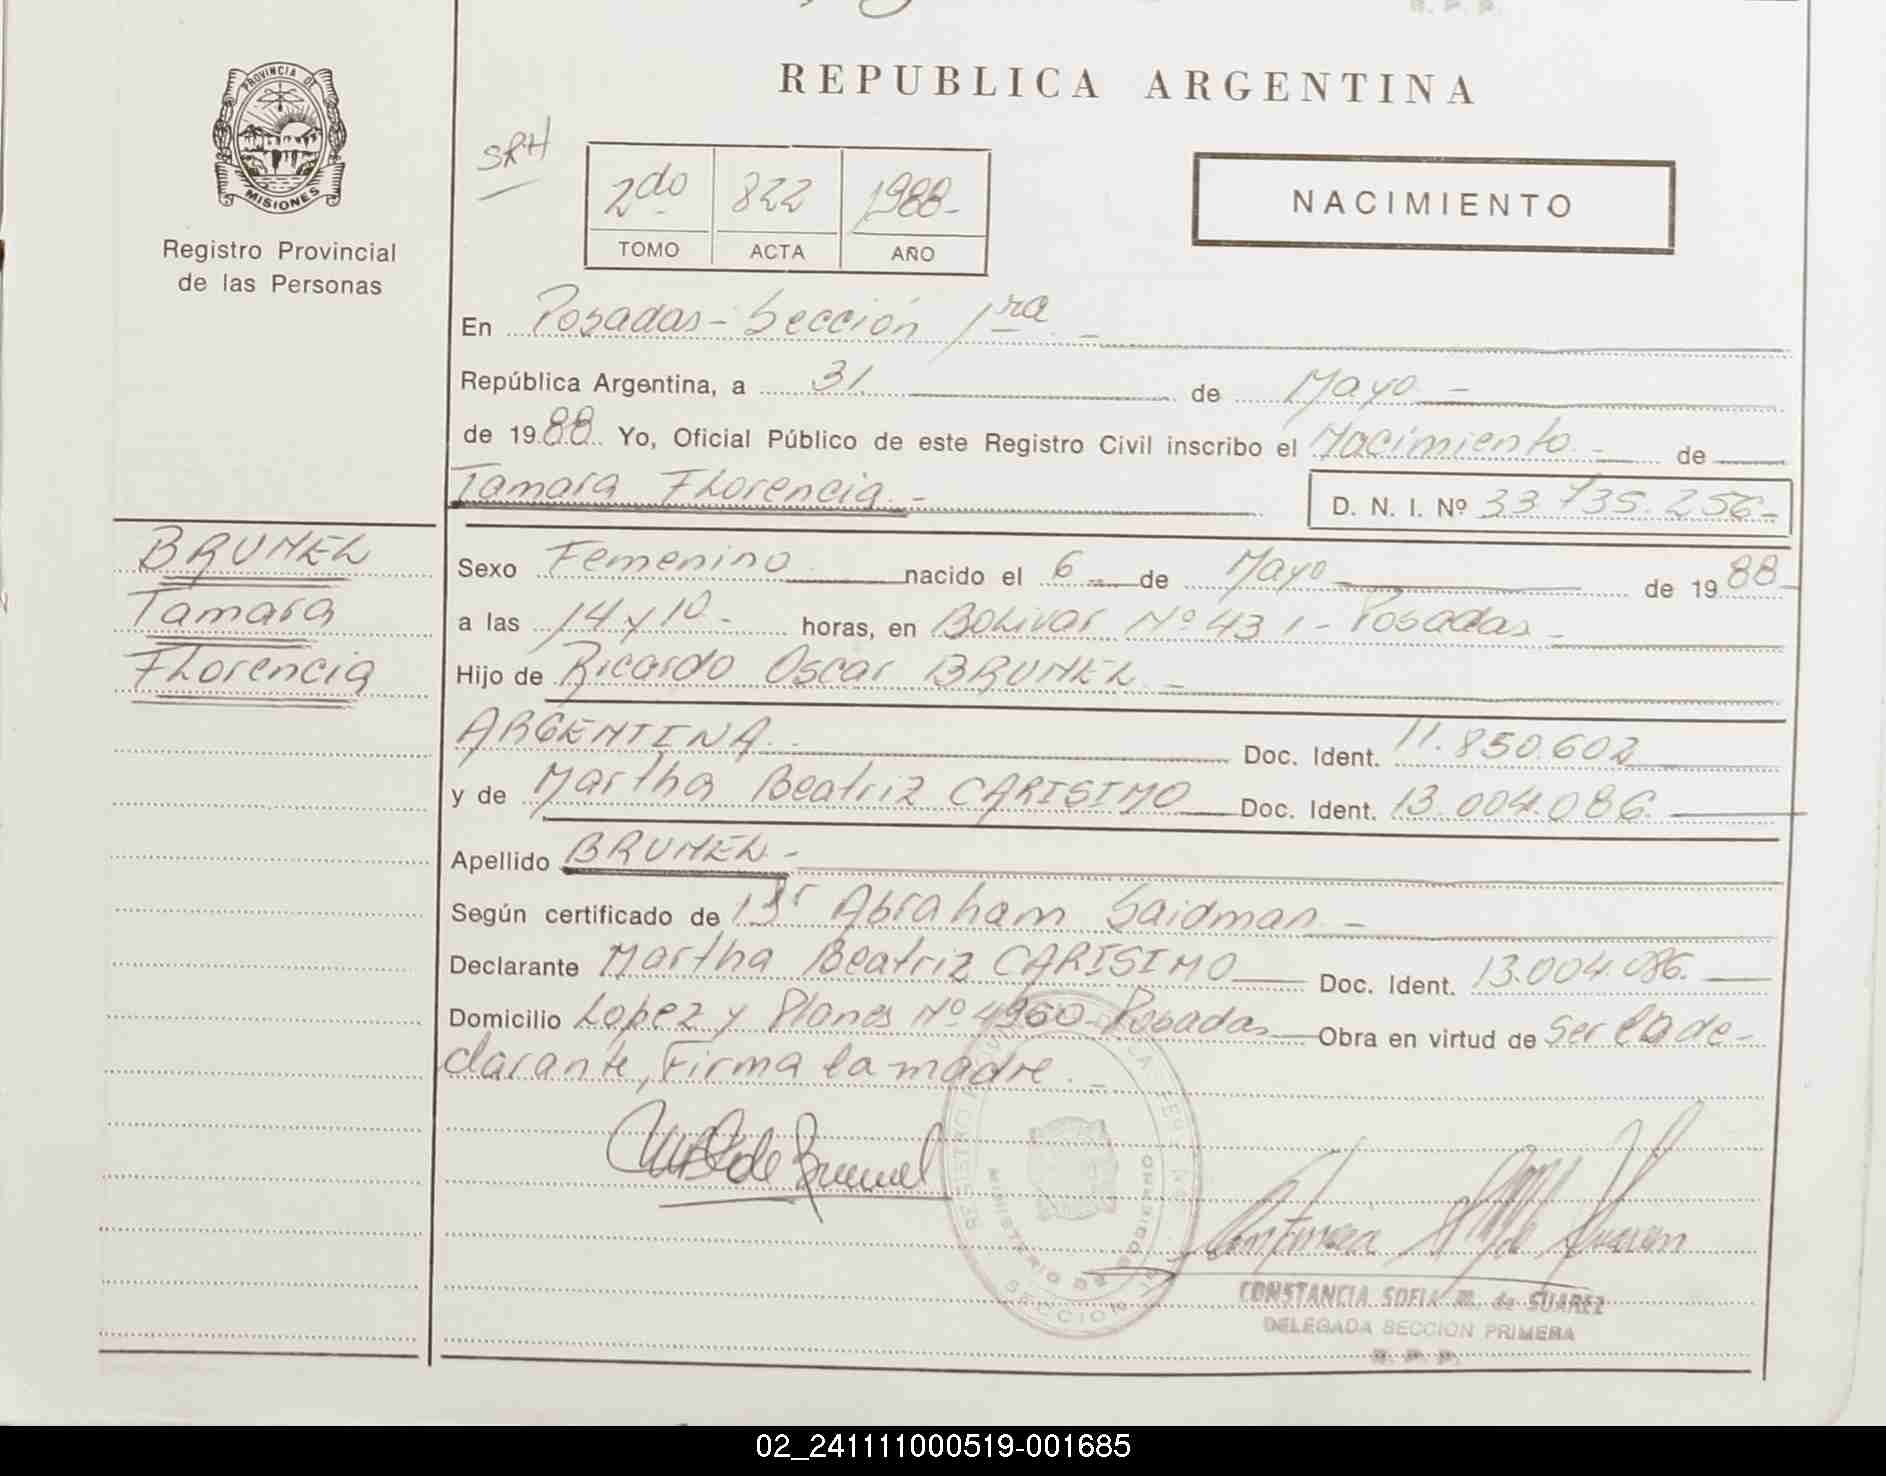 R. P. P.
PROVINCIA DE
MISIONES
Registro Provincial
de las Personas
REPUBLICA ARGENTINA
SRH
2do 822 1988-
TOMO ACTA AÑO
NACIMIENTO
En Posadas - Sección 1ra -
República Argentina, a 31 de Mayo -
de 1988. Yo, Oficial Público de este Registro Civil inscribo el Nacimiento - de
Tamara Florencia. - D. N. I. Nº 33.735.256-
BRUMEL
Tamara
Florencia
Sexo Femenino nacido el 6 de Mayo de 1988
a las 14 y 10 - horas, en Bolivar Nº 431 - Posadas -
Hijo de Ricardo Oscar BRUMEL -
ARGENTINA. - Doc. Ident. 11.850.602
y de Martha Beatriz CARISIMO Doc. Ident. 13.004.086.
Apellido BRUMEL -
Según certificado de Dr Abraham Saidman -
Declarante Martha Beatriz CARISIMO Doc. Ident. 13.004.086.
Domicilio Lopez y Planes Nº 4960 - Posadas Obra en virtud de Ser la de-
clarante, Firma la madre. -
de Brumel
REGISTRO
MINISTERIO DE GOBIERNO
SECCION
CONSTANCIA SOFIA M. de SUAREZ
DELEGADA SECCION PRIMERA
R. P. P.
02_241111000519-001685